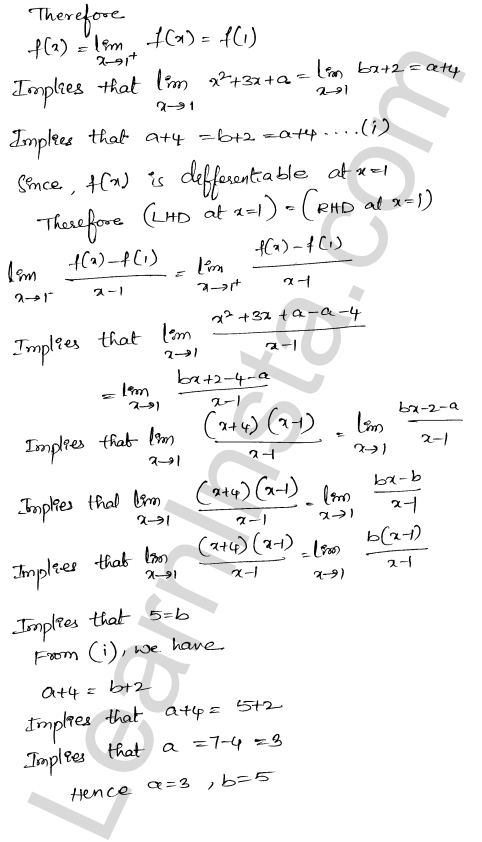 Therefore
f(x) = lim x→1⁺ f(x) = f(1)
Implies that lim x→1 x²+3x+a = lim x→1 bx+2 = a+4
Implies that a+4 = b+2 = a+4 ....(i)
Since, f(x) is defferentiable at x=1
Therefore (LHD at x=1) = (RHD at x=1)
lim x→1⁻ f(x)-f(1) / x-1 = lim x→1⁺ f(x)-f(1) / x-1
Implies that lim x→1 x²+3x+a-a-4 / x-1
= lim x→1 bx+2-4-a / x-1
Implies that lim x→1 (x+4)(x-1) / x-1 = lim x→1 bx-2-a / x-1
Implies that lim x→1 (x+4)(x-1) / x-1 = lim x→1 bx-b / x-1
Implies that lim x→1 (x+4)(x-1) / x-1 = lim x→1 b(x-1) / x-1
Implies that 5=b
From (i), we have
a+4 = b+2
Implies that a+4 = 5+2
Implies that a = 7-4 = 3
Hence a=3, b=5
LearnInsta.com